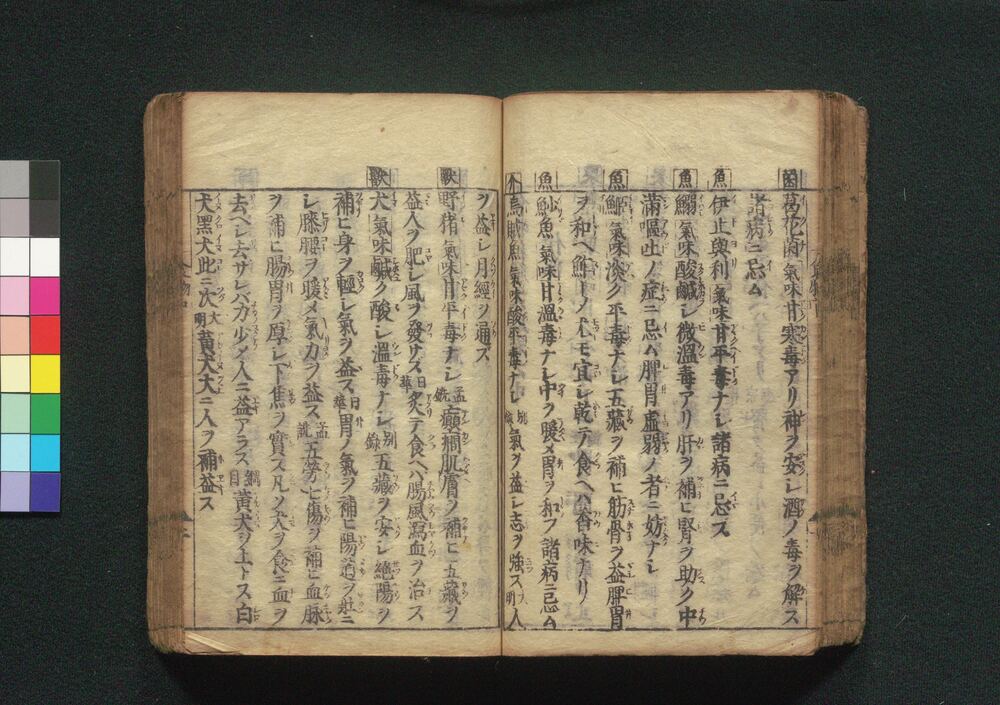 菌 葛花菌 氣味甘寒毒アリ神ヲ安シ酒ノ毒ヲ解ス
諸病ニ忌ム
魚 伊止與利 氣味甘平毒ナシ諸病ニ忌ス
魚 鰯 氣味酸鹹シ微溫毒アリ肝ヲ補ヒ腎ヲ助ク中
滿嘔吐ノ症ニ忌ム脾胃虚弱ノ者ニ妨ナシ
魚 氣味淡ク平毒ナシ五藏ヲ補ヒ筋骨ヲ益脾胃
ヲ和ヘ鮓ノ人モ宜シ乾テ食ヘハ食味ナリ
魚 魦魚 氣味甘溫毒ナシ中ヲ暖メ胃ヲ和フ諸病ニ忌ム
烏賊魚 氣味酸平毒ナシ 別錄 氣ヲ益シ志ヲ強ス 明 人
ヲ益シ月經ヲ通ス
獸 野猪 氣味甘平毒ナシ 孟詵 癲癇肌膚ヲ補ヒ五藏ヲ
益人ヲ肥シ風ヲ發サス 日華 炙テ食ヘハ腸風瀉血ヲ治ス
獸 犬 氣味鹹ク酸シ溫毒ナシ 別錄 五藏ヲ安シ絶陽ヲ
補ヒ身ヲ輕シ氣ヲ益ス 日華 胃ノ氣ヲ補ヒ陽道ヲ壯ニ
シ膝腰ヲ暖メ氣力ヲ益ス 孟詵 五勞七傷ヲ補ヒ血脉
ヲ補ヒ腸胃ヲ厚シ下焦ヲ實ス凡ソ犬ヲ食ニ血ヲ
去ヘシ去サレハ力少メ人ニ益アラス 綱目 黄犬ヲ上トス白
犬黑犬此ニ次 大明 黄犬大ニ人ヲ補益ス